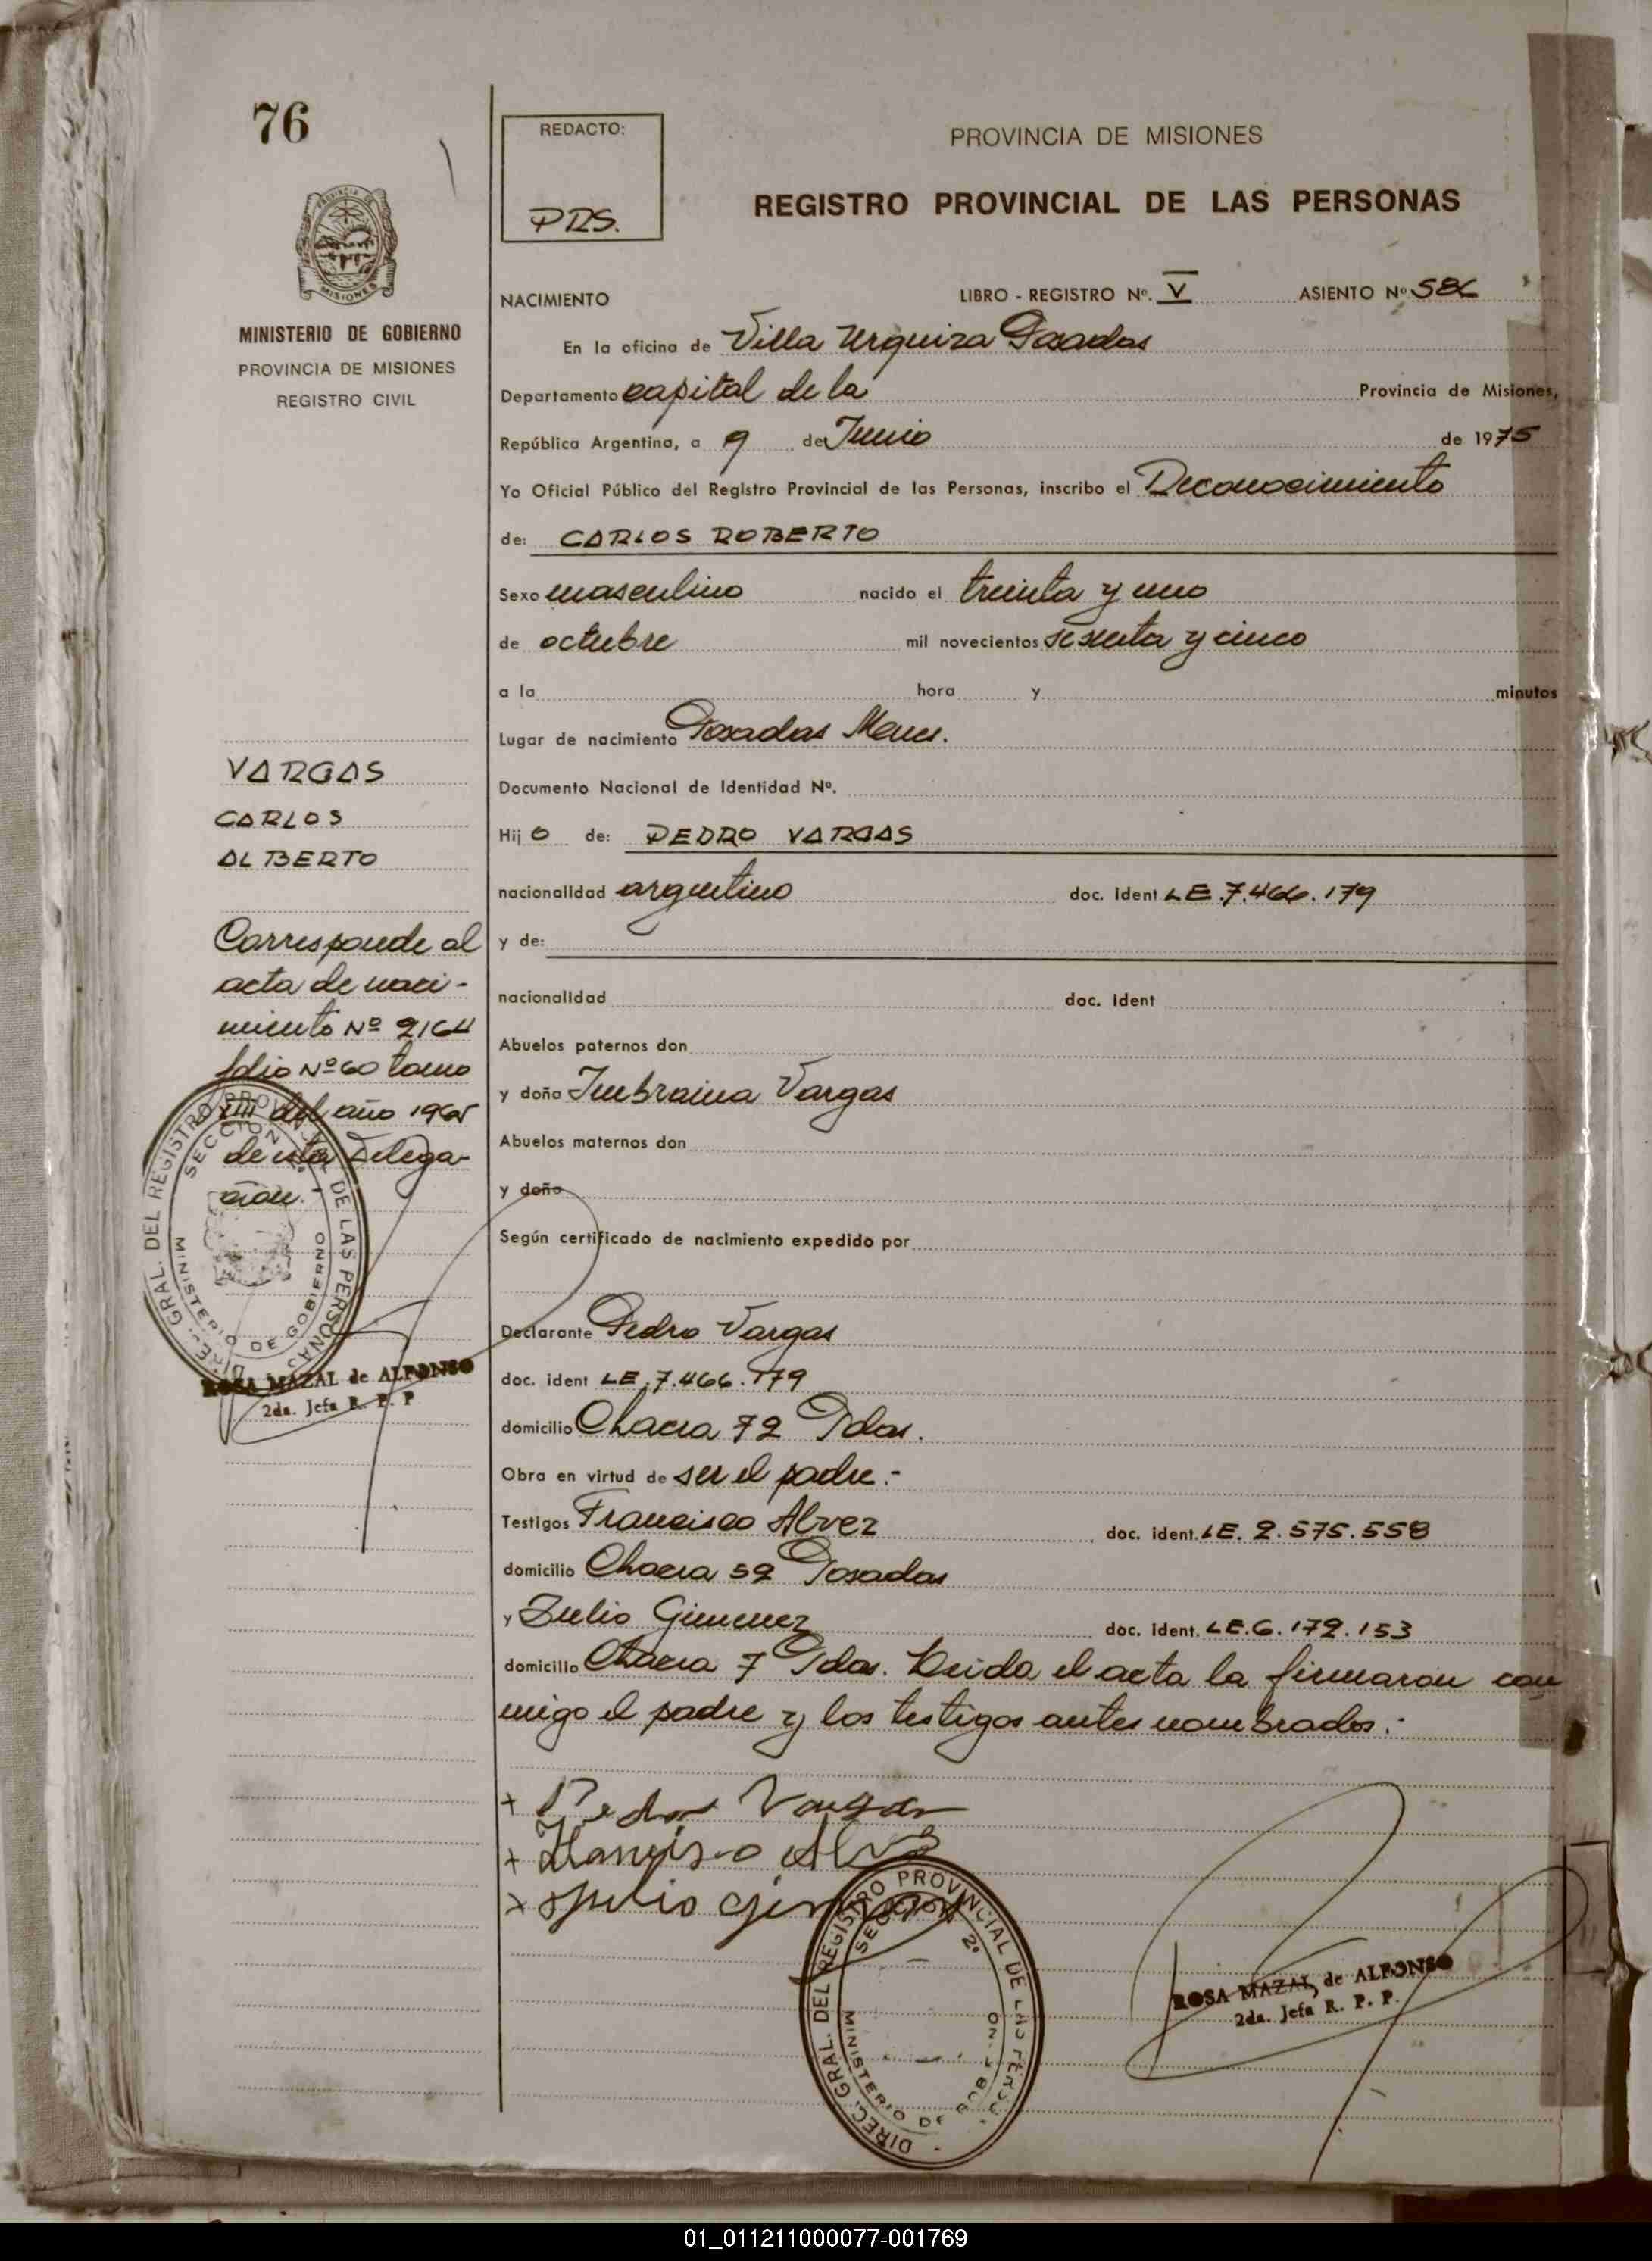 76
REDACTO:
PRS.
PROVINCIA DE MISIONES
REGISTRO PROVINCIAL DE LAS PERSONAS
MISIONES
MINISTERIO DE GOBIERNO
PROVINCIA DE MISIONES
REGISTRO CIVIL
NACIMIENTO LIBRO - REGISTRO Nº. V ASIENTO Nº 586
En la oficina de Villa Urquiza Posadas
Departamento capital de la Provincia de Misiones,
República Argentina, a 9 de Junio de 1975
Yo Oficial Público del Registro Provincial de las Personas, inscribo el Reconocimiento
de: CARLOS ROBERTO
Sexo masculino nacido el treinta y uno
de octubre mil novecientos sesenta y cinco
a la hora y minutos
Lugar de nacimiento Posadas Mnes.
Documento Nacional de Identidad Nº.
Hij o de: PEDRO VARGAS
nacionalidad argentino doc. Ident LE.7.466.179
y de:
nacionalidad doc. Ident
Abuelos paternos don
y doña Vargas
Abuelos maternos don
y doña
Según certificado de nacimiento expedido por
Declarante Pedro Vargas
doc. ident LE.7.466.179
domicilio Chacra 72 Pdas.
Obra en virtud de ser el padre.-
Testigos Francisco Alvez doc. ident. LE. 2.575.558
domicilio Chacra 59 Posadas
y Julio Gimenez doc. ident. LE.6.172.153
domicilio Chacra 7 Pdas. Leida el acta la firmaron con
migo el padre y los testigos antes nombrados.-
VARGAS
CARLOS
ALBERTO
Corresponde al
acta de naci-
miento Nº 2164
folio Nº 60 tomo
XIII del año 1965
de esta Delega-
cion.-
DIREC. GRAL. DEL REGISTRO PROVINCIAL DE LAS PERSONAS
SECCION
MINISTERIO DE GOBIERNO
ROSA MAZAL de ALFONSO
2da. Jefa R. P. P
+ Pedro Vargas
+ Francisco Alvez
x Julio Gimenez
DIREC. GRAL. DEL REGISTRO PROVINCIAL DE LAS PERSONAS
SECCION 2º
MINISTERIO DE GOBIERNO
ROSA MAZAL de ALFONSO
2da. Jefa R. P. P.
01_011211000077-001769